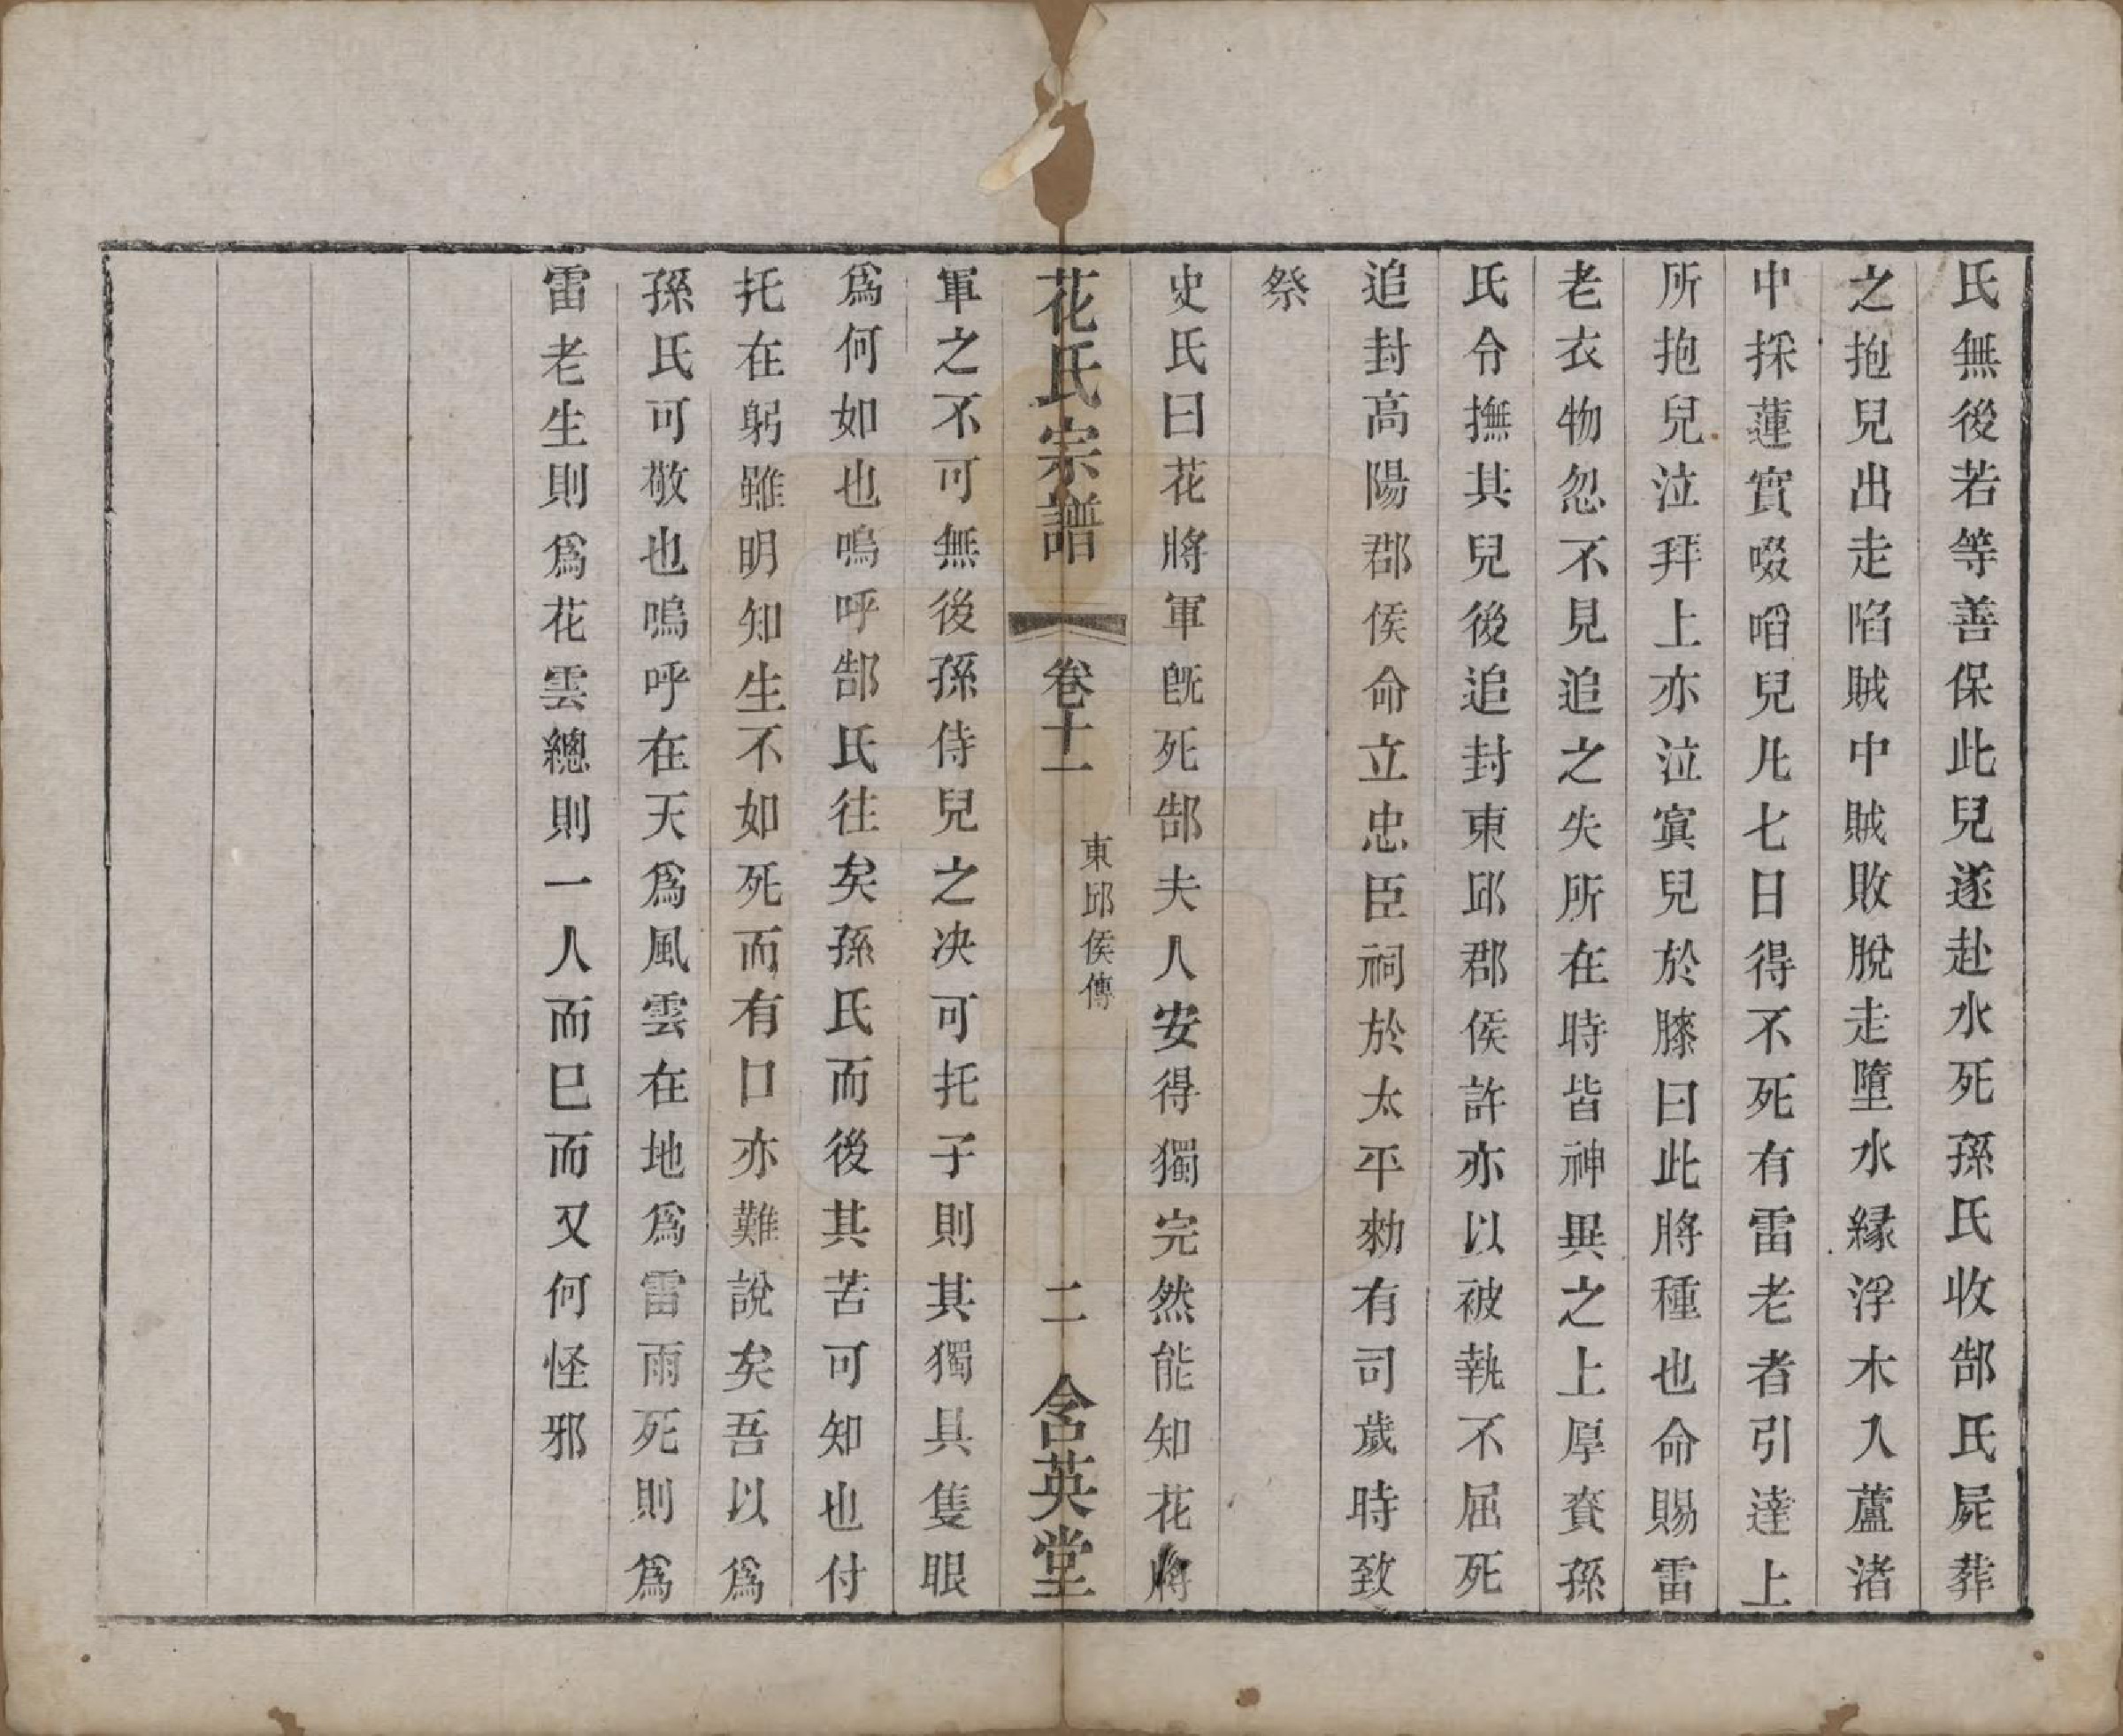 氏無後若等善保此兒遂赴水死孫氏收郜氏屍葬
之抱兒出走陷賊中賊敗脫走墮水緣浮木入蘆渚
中採蓮實啜啗兒凡七日得不死有雷老者引達上
所抱兒泣拜上亦泣寘兒於膝曰此將種也命賜雷
老衣物忽不見追之失所在時皆神異之上厚賚孫
氏令撫其兒後追封東邱郡侯許亦以被執不屈死
追封高陽郡侯命立忠臣祠於太平勑有司歲時致
祭
史氏曰花將軍既死郜夫人安得獨完然能知花將
花氏宗譜 卷十一 東邱侯傳 二 含英堂
軍之不可無後孫侍兒之决可托子則其獨具隻眼
爲何如也嗚呼郜氏往矣孫氏而後其苦可知也付
托在躬雖明知生不如死而有口亦難說矣吾以爲
孫氏可敬也嗚呼在天爲風雲在地爲雷雨死則爲
雷老生則爲花雲總則一人而巳而又何怪邪